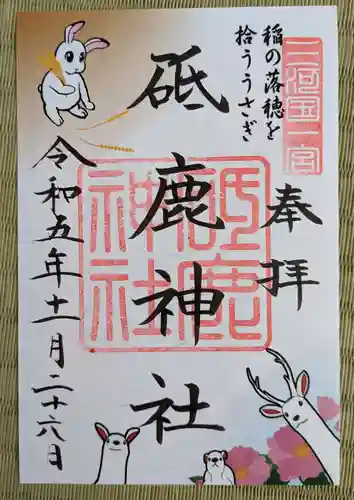 三河國一宮
稲の落穂を
拾ううさぎ
奉拝
砥鹿神社
砥鹿神社
令和五年十一月二十六日